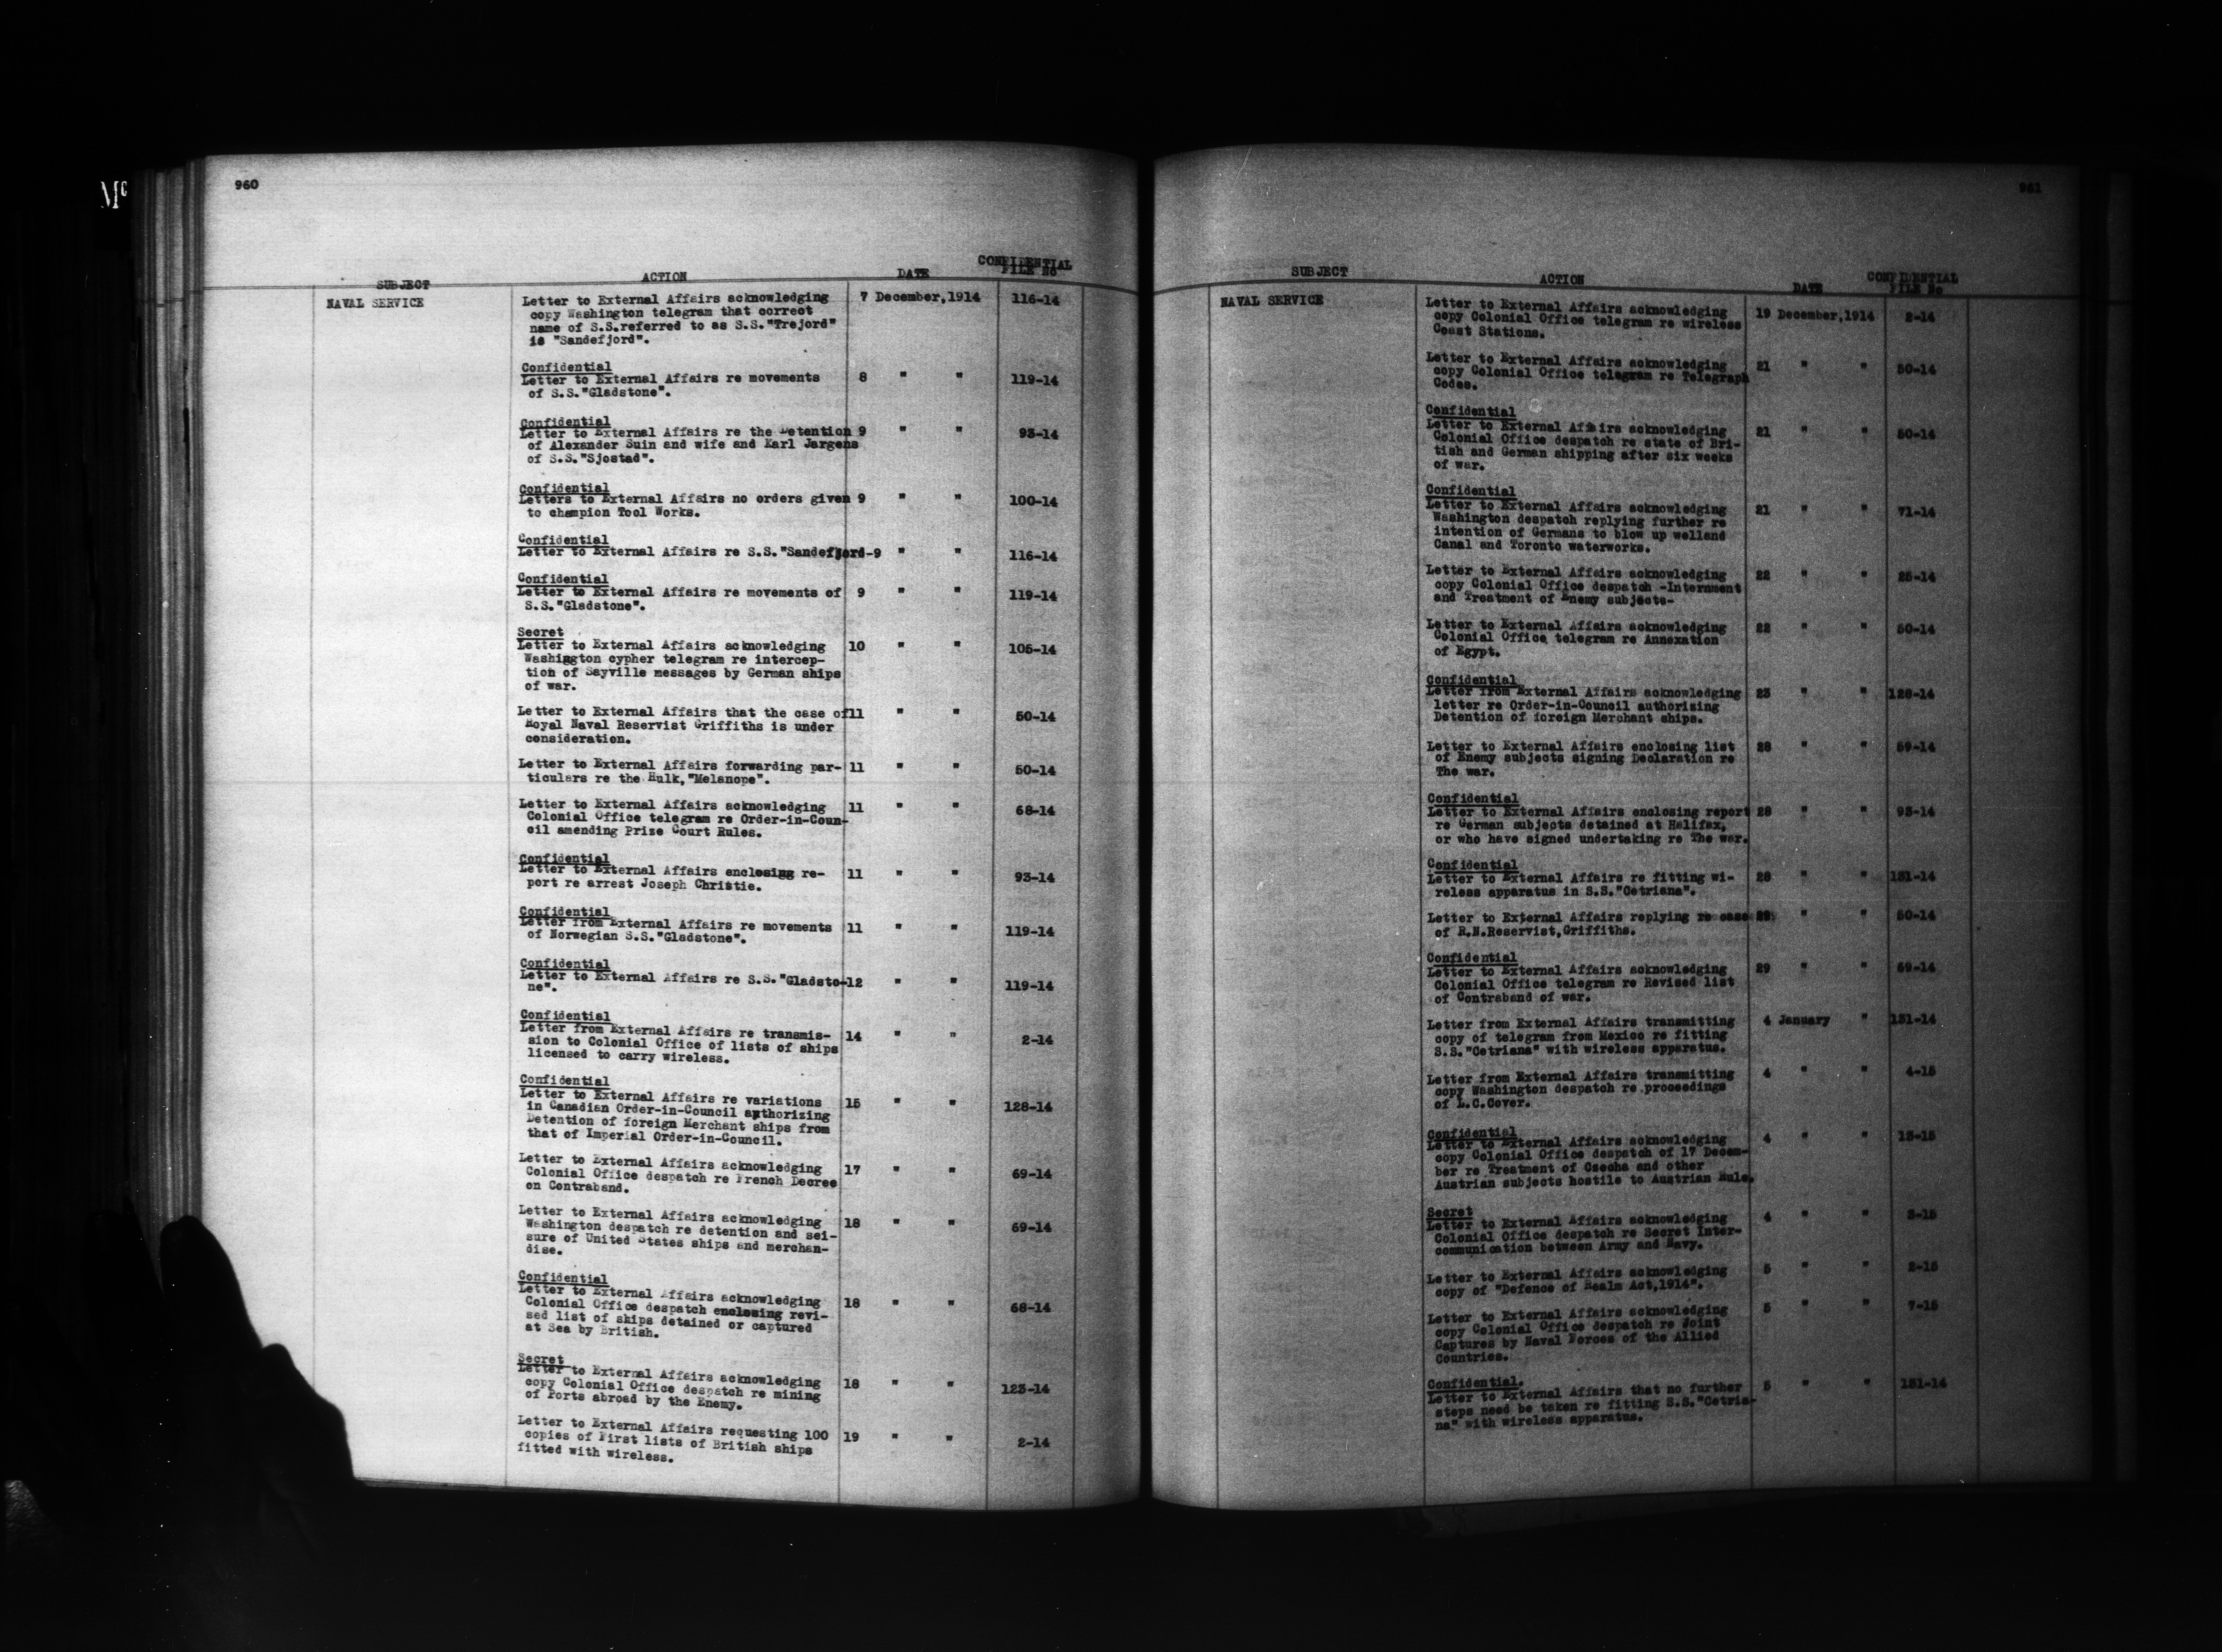 Mc
960
SUBJECT ACTION DATE CONFIDENTIAL FILE No
NAVAL SERVICE
Letter to External Affairs acknowledging 7 December,1914 116-14
copy Washington telegram that correct
name of S.S.referred to as S.S."Trejord"
is "Sandefjord".
Confidential
Letter to External Affairs re movements 8 " " 119-14
of S.S."Gladstone".
Confidential
Letter to External Affairs re the Detention 9 " " 93-14
of Alexander Suin and wife and Karl Jargens
of S.S."Sjostad".
Confidential
Letters to External Affairs no orders given 9 " " 100-14
to champion Tool Works.
Confidential
Letter to External Affairs re S.S."Sandefjord-9 " " 116-14
Confidential
Letter to External Affairs re movements of 9 " " 119-14
S.S."Gladstone".
Secret
Letter to External Affairs acknowledging 10 " " 105-14
Washington cypher telegram re intercep-
tion of Sayville messages by German ships
of war.
Letter to External Affairs that the case of 11 " " 50-14
Royal Naval Reservist Griffiths is under
consideration.
Letter to External Affairs forwarding par- 11 " " 50-14
ticulars re the Hulk,"Melanope".
Letter to External Affairs acknowledging 11 " " 68-14
Colonial Office telegram re Order-in-Coun-
cil amending Prize Court Rules.
Confidential
Letter to External Affairs enclosing re- 11 " " 93-14
port re arrest Joseph Christie.
Confidential
Letter from External Affairs re movements 11 " " 119-14
of Norwegian S.S."Gladstone".
Confidential
Letter to External Affairs re S.S."Gladsto-12 " " 119-14
ne".
Confidential
Letter from External Affairs re transmis- 14 " " 2-14
sion to Colonial Office of lists of ships
licensed to carry wireless.
Confidential
Letter to External Affairs re variations 15 " " 128-14
in Canadian Order-in-Council authorizing
Detention of foreign Merchant ships from
that of Imperial Order-in-Council.
Letter to External Affairs acknowledging 17 " " 69-14
Colonial Office despatch re French Decree
on Contraband.
Letter to External Affairs acknowledging 18 " " 69-14
Washington despatch re detention and sei-
sure of United States ships and merchan-
dise.
Confidential
Letter to External Affairs acknowledging 18 " " 68-14
Colonial Office despatch enclosing revi-
sed list of ships detained or captured
at Sea by British.
Secret
Letter to External Affairs acknowledging 18 " " 123-14
copy Colonial Office despatch re mining
of Ports abroad by the Enemy.
Letter to External Affairs requesting 100 19 " " 2-14
copies of First lists of British ships
fitted with wireless.
961
SUBJECT ACTION DATE CONFIDENTIAL FILE No
NAVAL SERVICE
Letter to External Affairs acknowledging 19 December,1914 2-14
copy Colonial Office telegram re wireless
Coast Stations.
Letter to External Affairs acknowledging 21 " " 50-14
copy Colonial Office telegram re Telegraph
Codes.
Confidential
Letter to External Affairs acknowledging 21 " " 50-14
Colonial Office despatch re state of Bri-
tish and German shipping after six weeks
of war.
Confidential
Letter to External Affairs acknowledging 21 " " 71-14
Washington despatch replying further re
intention of Germans to blow up welland
Canal and Toronto waterworks.
Letter to External Affairs acknowledging 22 " " 25-14
copy Colonial Office despatch -Internment
and Treatment of Enemy subjects-
Letter to External Affairs acknowledging 22 " " 50-14
Colonial Office telegram re Annexation
of Egypt.
Confidential
Letter from External Affairs acknowledging 23 " " 128-14
letter re Order-in-Council authorising
Detention of foreign Merchant ships.
Letter to External Affairs enclosing list 28 " " 59-14
of Enemy subjects signing Declaration re
The war.
Confidential
Letter to External Affairs enclosing report 28 " " 93-14
re German subjects detained at Halifax,
or who have signed undertaking re The war.
Confidential
Letter to External Affairs re fitting wi- 28 " " 131-14
reless apparatus in S.S."Cetriana".
Letter to External Affairs replying re case 29 " " 50-14
of R.N.Reservist,Griffiths.
Confidential
Letter to External Affairs acknowledging 29 " " 69-14
Colonial Office telegram re Revised list
of Contraband of war.
Letter from External Affairs transmitting 4 January " 131-14
copy of telegram from Mexico re fitting
S.S."Cetriana" with wireless apparatus.
Letter from External Affairs transmitting 4 " " 4-15
copy Washington despatch re proceedings
of L.C.Cover.
Confidential
Letter to External Affairs acknowledging 4 " " 13-15
copy Colonial Office despatch of 17 Decem-
ber re Treatment of Czechs and other
Austrian subjects hostile to Austrian Rule.
Secret
Letter to External Affairs acknowledging 4 " " 3-15
Colonial Office despatch re Secret Inter-
communication between Army and Navy.
Letter to External Affairs acknowledging 5 " " 2-15
copy of "Defence of Realm Act,1914".
Letter to External Affairs acknowledging 5 " " 7-15
copy Colonial Office despatch re Joint
Captures by Naval Forces of the Allied
Countries.
Confidential.
Letter to External Affairs that no further 5 " " 131-14
steps need be taken re fitting S.S."Cetria-
na" with wireless apparatus.